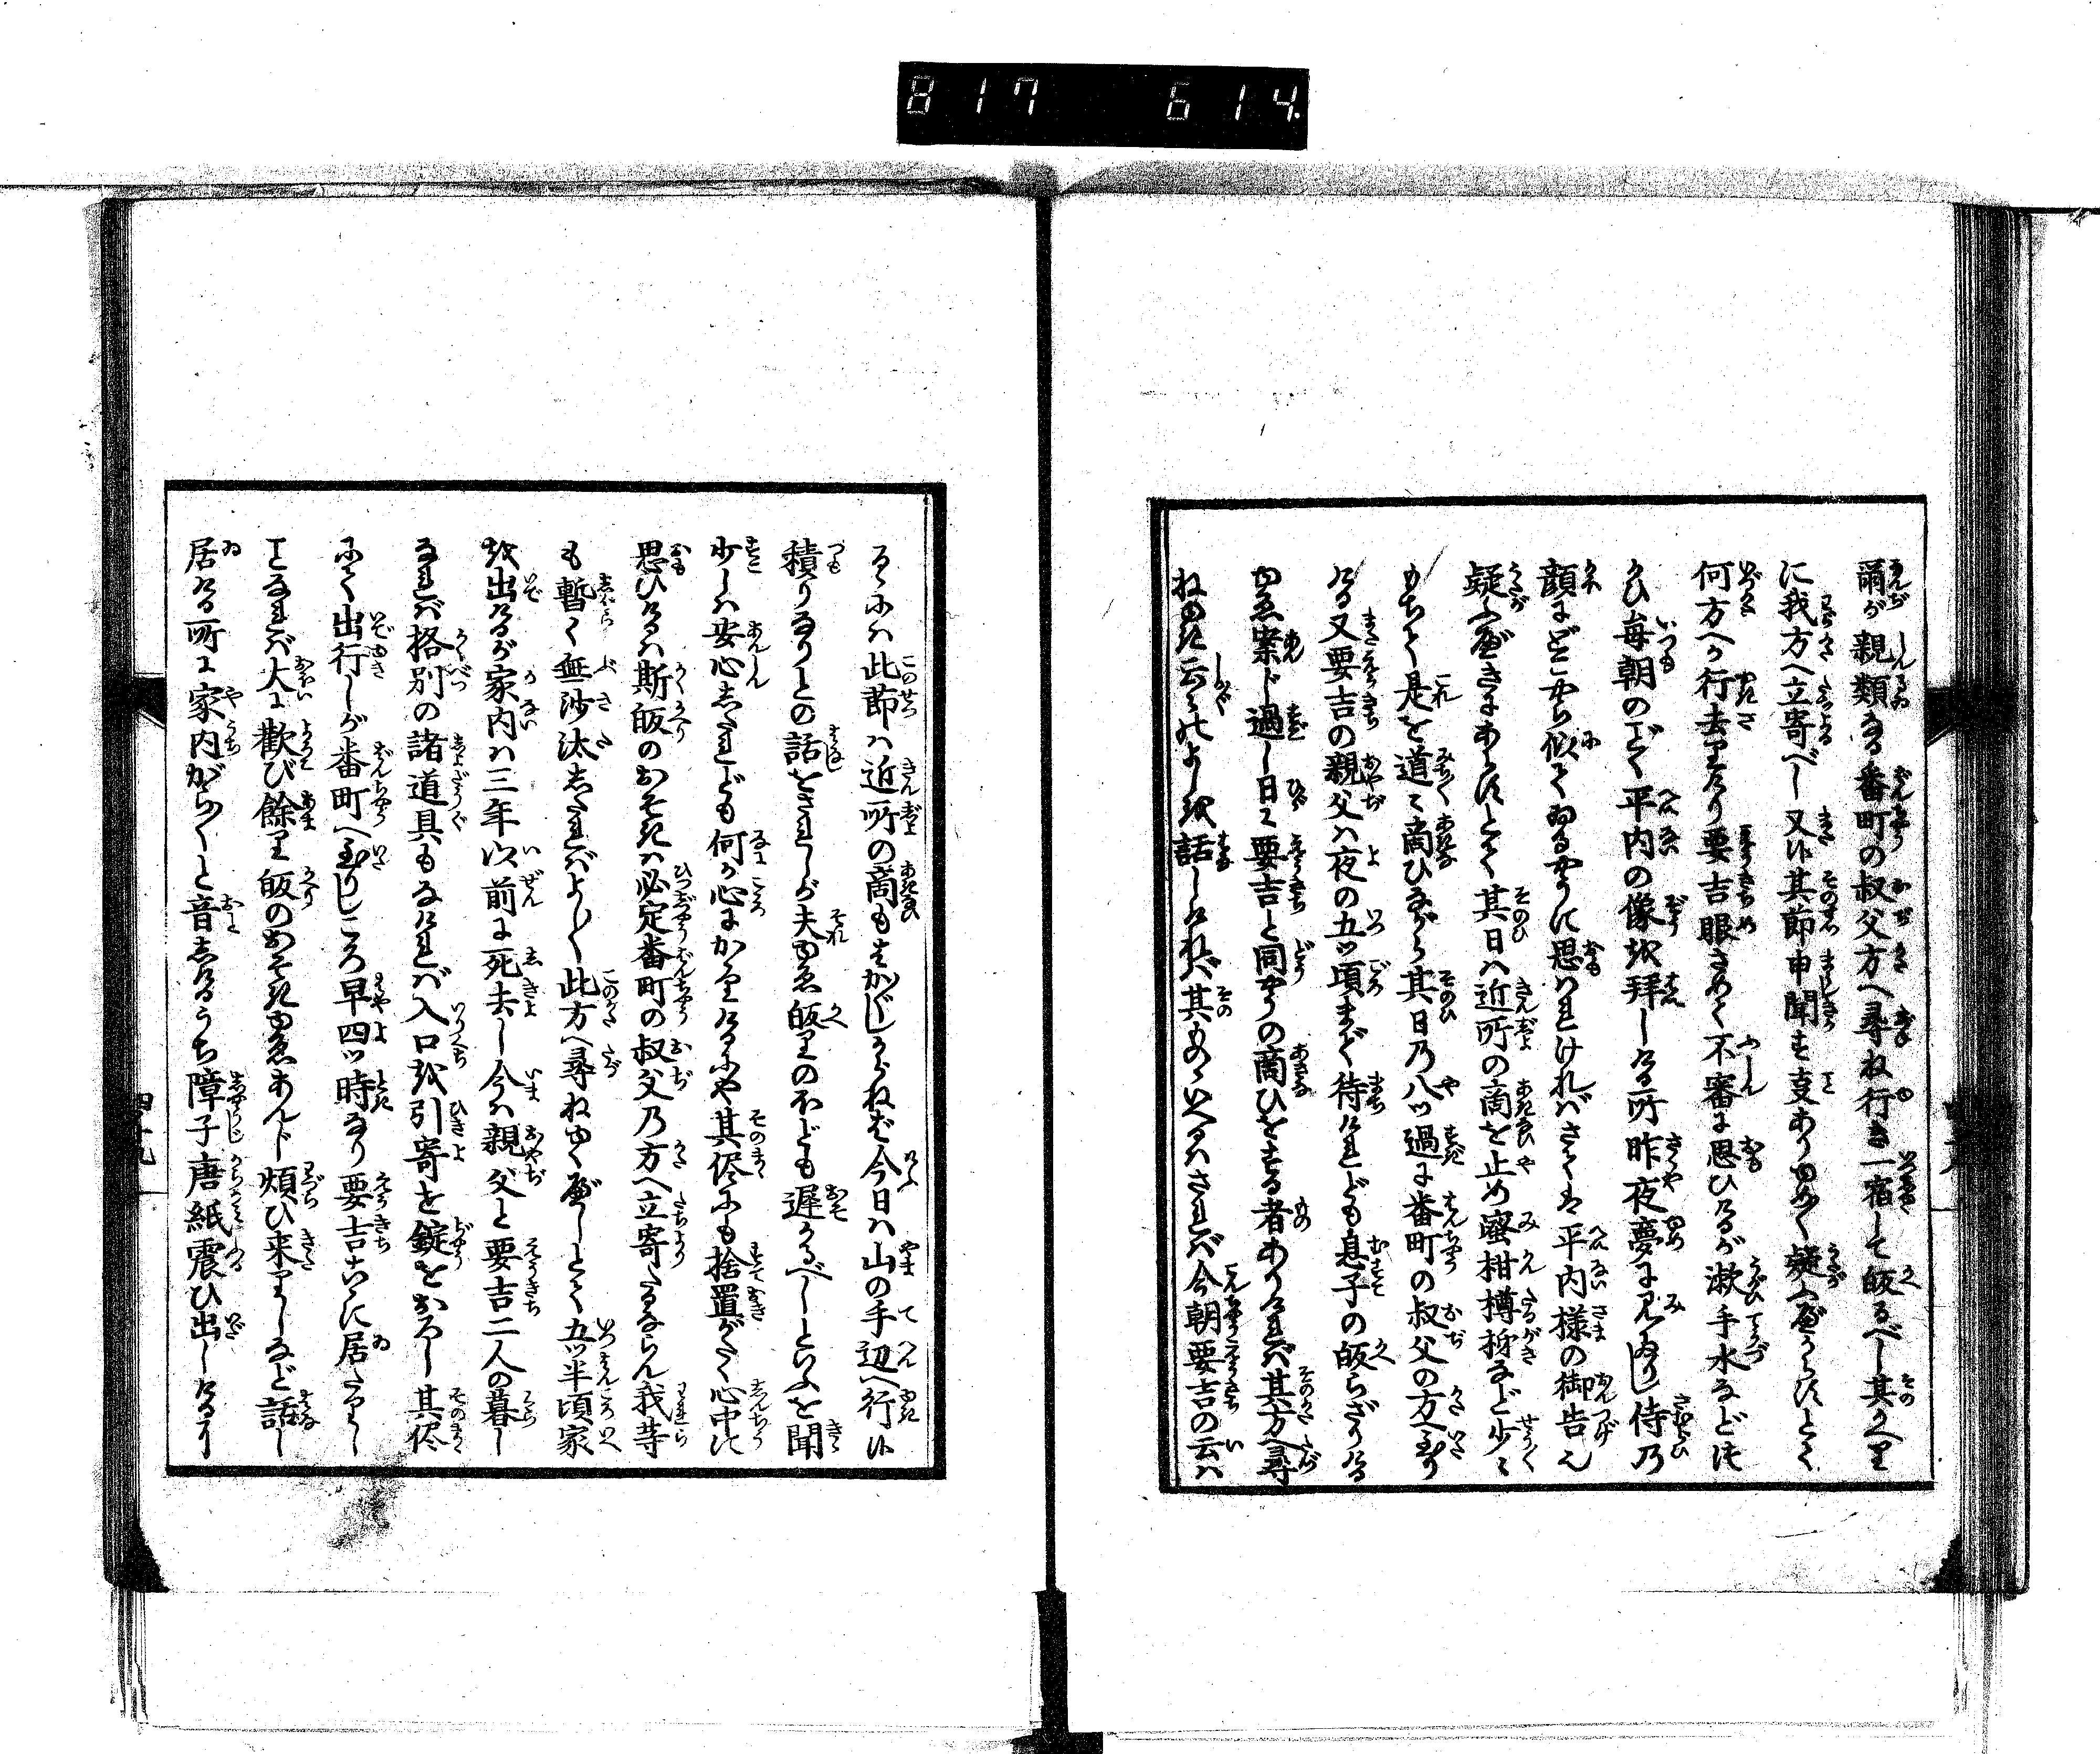 817 614
爾が親類なる番町の叔父方へ尋ね行き一宿して皈るべし其かへり
に我方へ立寄べし又々其節申聞す事ありゆめ〳〵疑ふべからずとて
何方へか行去りたり要吉眼さめて不審に思ひけるが漱手水などつ
かひ毎朝のごとく平内の像を拝しける所昨夜夢に見へありし侍乃
顔にどこやら似てゐるやうに思はれければさては平内様の御告ん
疑ふべきにあらずとて其日は近所の商を止め蜜柑樽抔など少々
もちて是を道々商ひながら其日乃八ツ過に番町の叔父の方へ至り
ける又要吉の親父は夜の五ツ頃まで待けれども息子の皈らざりける
ゆゑ案じ過し日々要吉と同やうの商ひをする者ありければ其方へ尋
ねゆき云々のよしを話しければ其ものいへるはされば今朝要吉の云は
るゝには此節は近所の商もすがじからねば今日は山の手辺へ行
積りなりとの話をきゝしが夫ゆゑ皈りのほども遅かるべしといふを聞
少しは安心したれども何か心にかゝりけるにや其侭にも捨置がたく心中に
思ひけるは斯皈のおそきは必定番町の叔父乃方へ立寄たるならん我等
も暫く無沙汰したればよし〳〵此方へ尋ねゆくべしとて五ツ半頃家
を出けるが家内は三年以前に死去し今は親父と要吉二人の暮し
なれば格別の諸道具もなければ入口を引寄を錠をおろし其侭
にて出行しが番町へ至りしころ早四ツ時なり要吉こゝに居たりし
事なれば大に歓び餘り皈のおそきゆゑあんじ煩ひ来りしなど話し
居ける所に家内がら〳〵と音しけるうち障子唐紙震ひ出しけるに
四十九